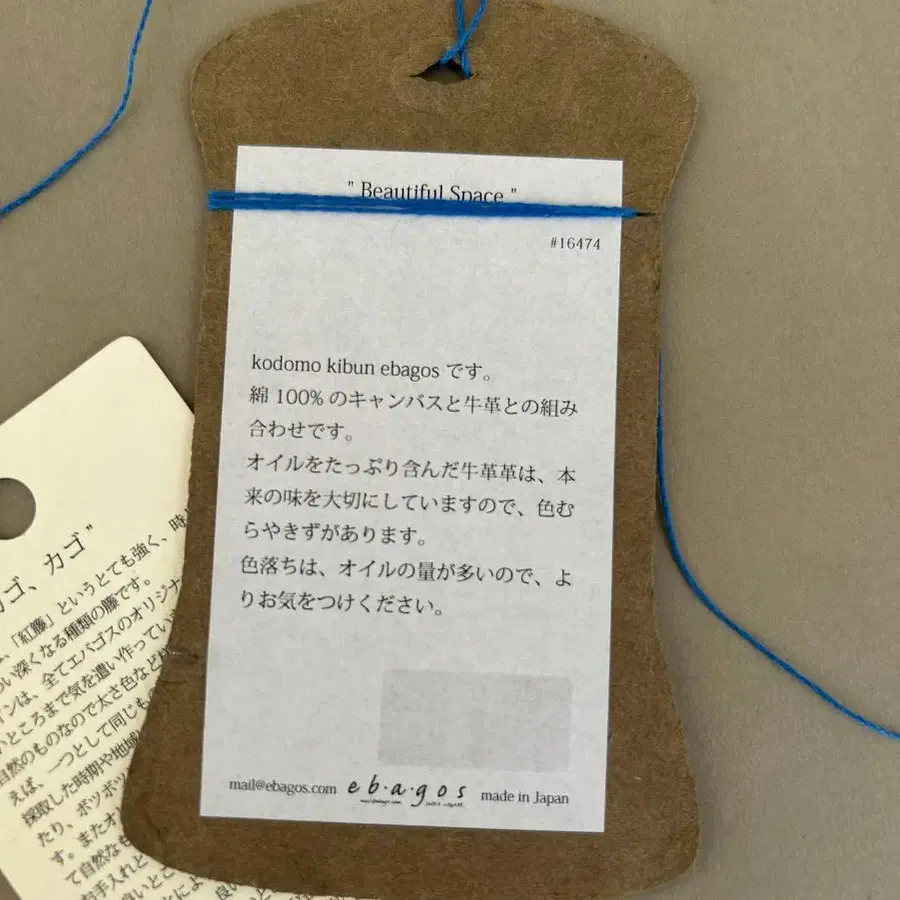 " Beautiful Space "
#16474
kodomo kibun ebagos です。
綿 100% のキャンバスと牛革との組み
合わせです。
オイルをたっぷり含んだ牛革革は、本
来の味を大切にしていますので、色む
らやきずがあります。
色落ちは、オイルの量が多いので、よ
りお気をつけください。
mail@ebagos.com
e・b・a・g・o・s
made in Japan
ゴ、カゴ”
、「紅藤」というとても強く、時
い深くなる種類の藤です。
インは、全てエバゴスのオリジナ
いところまで気を遣い作ってい
自然のものなので太さ色など
えば、一つとして同じも
採取した時期や地域
たり、ポツポツ
す。またオ
て自然なも
お手入れと
良いとこ